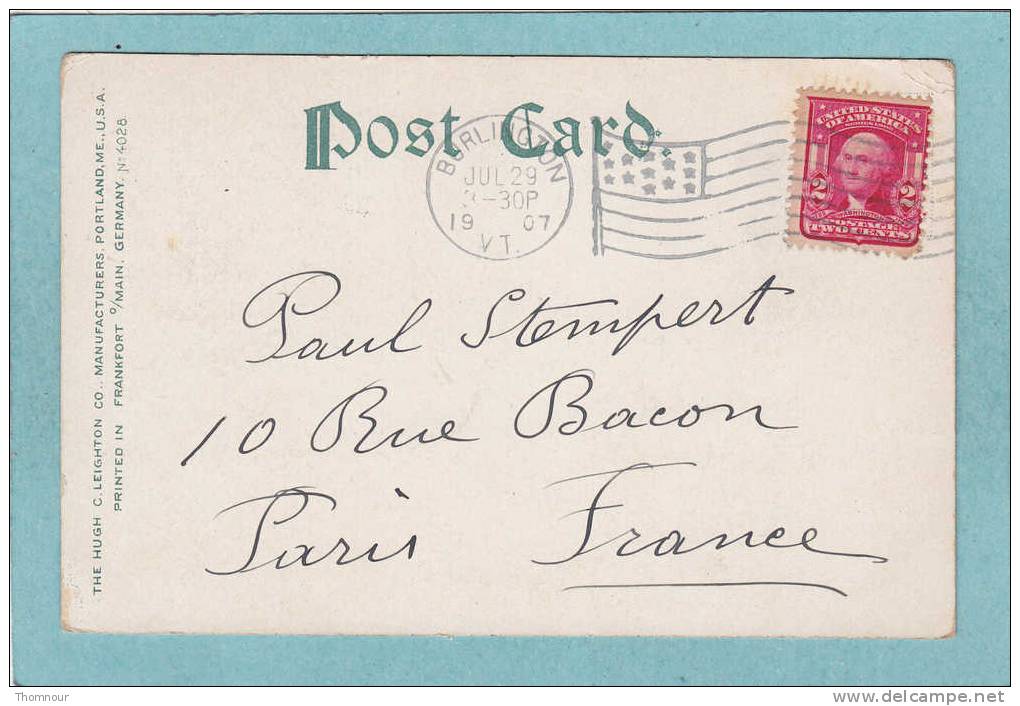 Post Card.
BURLINGTON
JUL 29
3-30P
19 07
VT.
UNITED STATES
OF AMERICA
2 2
WASHINGTON
POSTAGE
TWO CENTS
Paul Stempert
10 Rue Bacon
Paris France
THE HUGH C. LEIGHTON CO., MANUFACTURERS, PORTLAND, ME., U.S.A.
PRINTED IN FRANKFORT o/MAIN, GERMANY. No 4028
Thomnour
delcampe.net